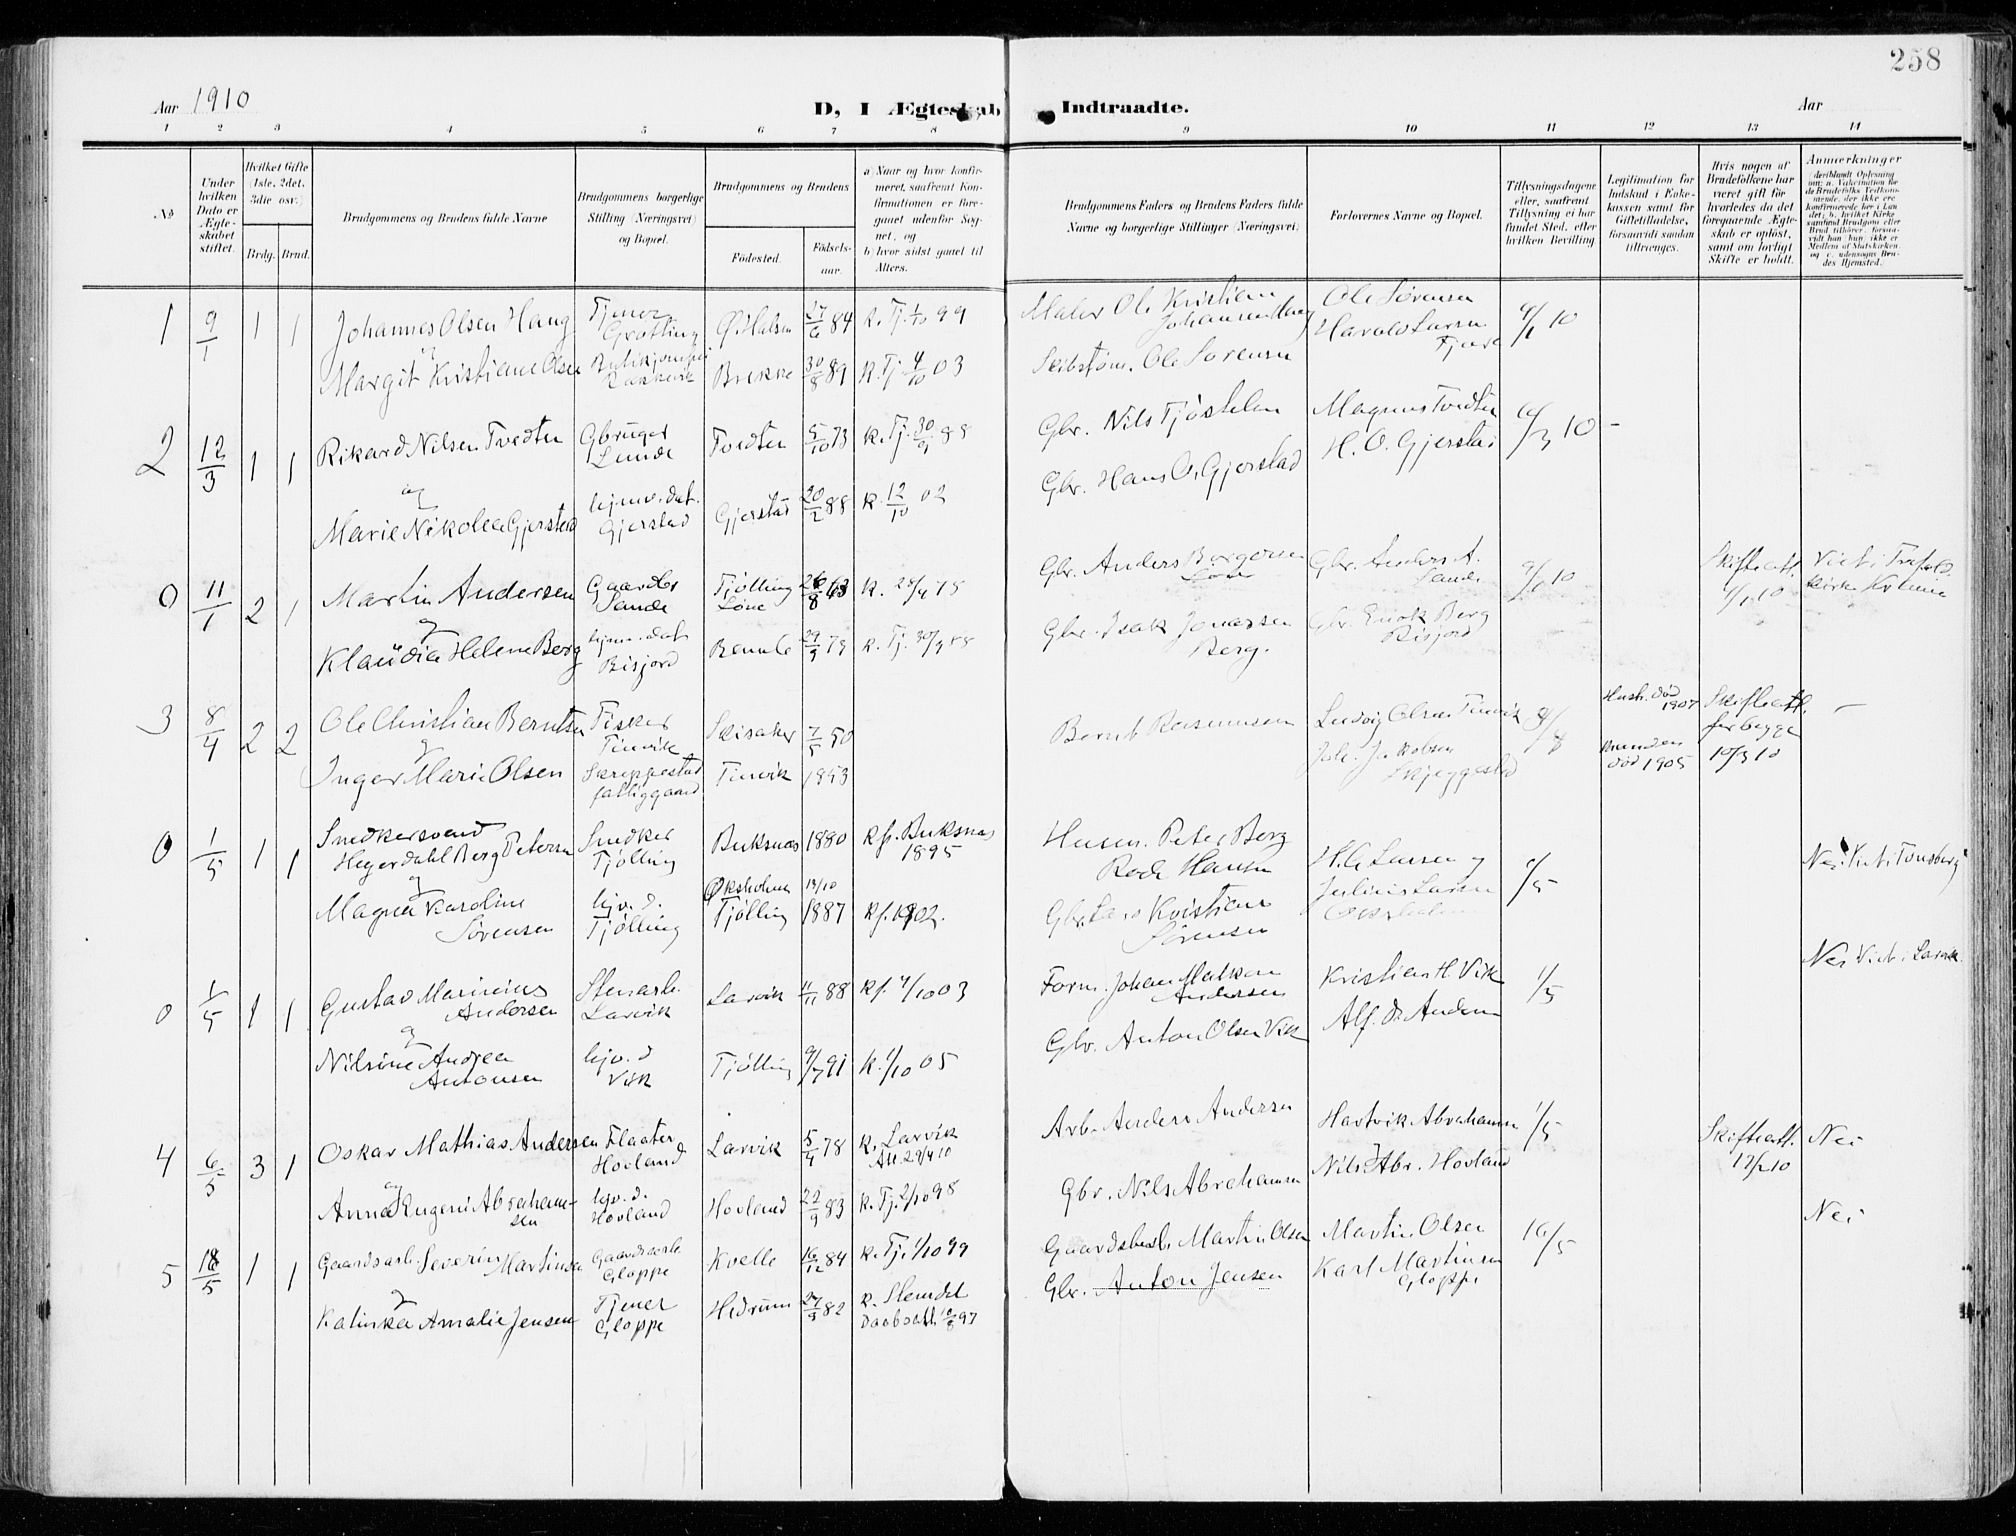 258
Aar 1910
D, I Ægteskab Indtraadte.
Aar
1 2 3 4 5 6 7 8 9 10 11 12 13 14
No
Under hvilken Dato er Ægteskabet stiftet.
Hvilket Gifte (1ste, 2det, 3die osv.)
Brdg. Brud.
Brudgommens og Brudens fulde Navne
Brudgommens borgerlige Stilling (Næringsvei) og Bopæl.
Brudgommens og Brudens
Fødested.
Fødsels-aar.
a) Naar og hvor konfirmeret, saafremt Konfirmationen er foregaaet udenfor Sognet, og
b) hvor sidst gaaet til Alters.
Brudgommens Faders og Brudens Faders fulde Navne og borgerlige Stillinger (Næringsvei)
Forlovernes Navne og Bopæl.
Tillysningsdagene eller, saafremt Tillysning ei har fundet Sted, efter hvilken Bevilling
Legitimation for Indskud i Enkekassen samt for Giftetilladelse, forsaavidt saadan tiltrænges.
Hvis nogen af Brudefolkene har været gift før hvorledes da det foregaaende Ægteskab er opløst, samt om lovligt Skifte er holdt.
Anmerkninger
1 9/1 1 1 Johannes Olsen Haug Tjener Grotting Ø. Halsen 27/6 84 k. Tj. 1/10 99 Maler Ole Kristian Johansen Haug Ole Sørensen
Harald Larsen 9/1 10
og
Margit Kristiane Olsen Brekke 30/8 89 k. Tj. 4/10 03 Skibstøm. Ole Sørensen
2 12/3 1 1 Rikard Nilsen Tvedten Gbruger Lunde Tvedten 5/10 73 k. Tj. 30/9 88 Gbr. Nils Tjøstelsen Magnus Tvedten 6/3 10 -
og
Marie Nikolea Gjerstad hjmv. dat. Gjerstad Gjerstad 20/2 88 k. 12/10 02 Gbr. Hans O. Gjerstad H. O. Gjerstad
0 11/1 2 1 Martin Andersen Gaardbr Sande Tjølling 26/8 63 k. Gbr. Anders Gbr. Anders A. Sande 9/1 10 Skifteatt. 9/1 10 Viet i
og
Klaudia Helene Berg hjmv. dat Risjord Bamble 29/3 73 k. Tj. 30/9 88 Gbr. Isak Jonassen Berg. Gbr. Enok Berg Risjord
3 8/4 2 2 Ole Christian Berntsen Fisker Tinvik Skisaker 7/5 50 Bernt Rasmussen Ludvig Olsen Tinvik Hustr. død 1907 Skifteatt. for begge 10/3 10 -
og
Inger Marie Olsen fattiggaard Tinvik 1853 Joh. Jakobsen Skjeggestad Manden død 1905
0 1/5 1 1 Snedkersvend Heyerdahl Berg Petersen Snedker Tjølling Buksnæs 1880 Kf. Buksnæs 1895 Husm. Peter Berg Rode Hansen H. C. Larsen og 1/5 Nei Viet i Tønsberg
og
Magna Karoline Sørensen hjv. d. Tjølling Øksholmen Tjølling 13/10 1887 Kf. 1902. Gbr. Lars Kristian Sørensen Julius Larsen
0 1/5 1 1 Gustav Marinius Andersen Stenarb. Larvik Larvik 11/11 88 Kf. 4/10 03 Form. Johan Andersen Kristian H. Vik 1/5 Nei Viet i Larvik
og
Nilsine Andrea Antonsen hjv. d Vik Tjølling 9/7 91 K. 1/10 05 Gbr. Anton Olsen Vik Alf. Andersen
4 6/5 3 1 Oskar Mathias Andersen Flaater Hovland Larvik 5/4 78 k. Larvik Att. 29/4 10 Arb. Anders Andersen Hartvik Abrahamsen 1/5 Skifteatt. 17/2 10 Nei
og
Anna Eugeni Abrahamsen hjv. d. Hovland Hovland 22/9 83 k. Tj. 2/10 98 Gbr. Nils Abrahamsen Nils Abr. Hovland
5 18/5 1 1 Gaardsarb. Severin Martinsen Gaardsarb Gloppe Kvelle 16/12 84 k. Tj. 1/10 99 Gaardsbest. Martin Olsen Martin Olsen 16/5 Nei
og
Katinka Amalie Jensen Tjener Gloppe Hedrum 27/9 82 k. Slemdal Daabsatt. 10/8 97 Gbr. Anton Jensen Karl Martinsen Gloppe